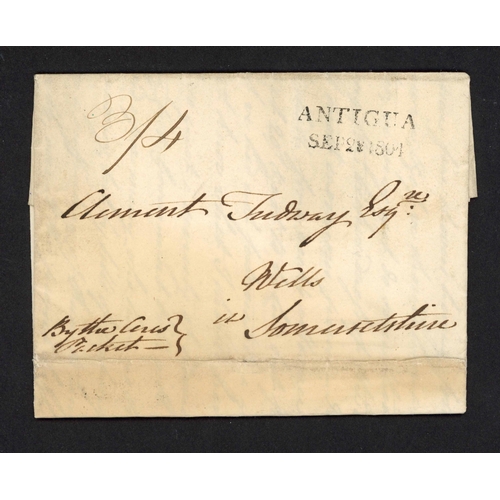 3/4
ANTIGUA
SEP 1804
Clement Tudway Esq.re
Wells
in Somersetshire
By the Ceres
Packet